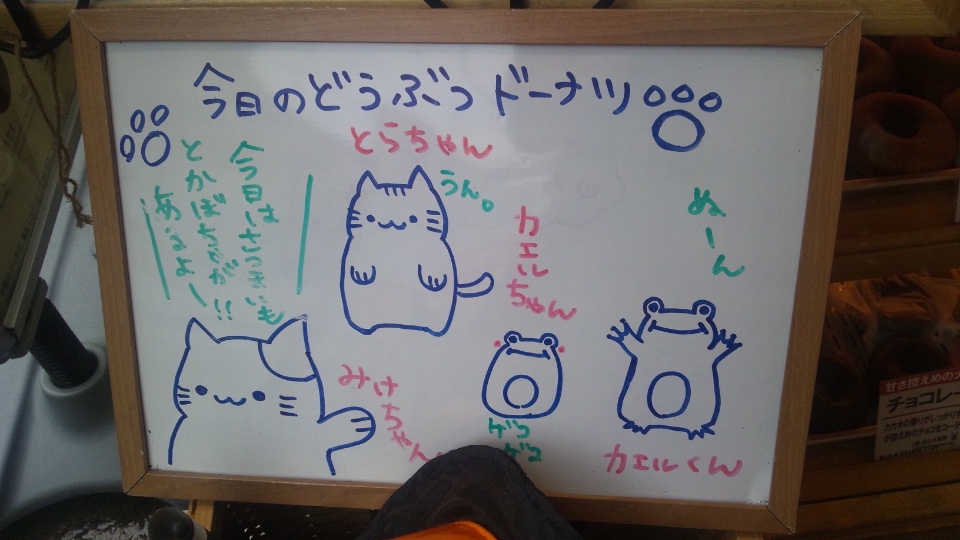 今日のどうぶつドーナツ
とらちゃん
うん。
今日はさつまいも
とかぼちゃが!!
あるよー!
カエルちゃん
ぬーん
みけちゃん
ゲコ
ゲコ
カエルくん
甘さ控えめの
チョコレー